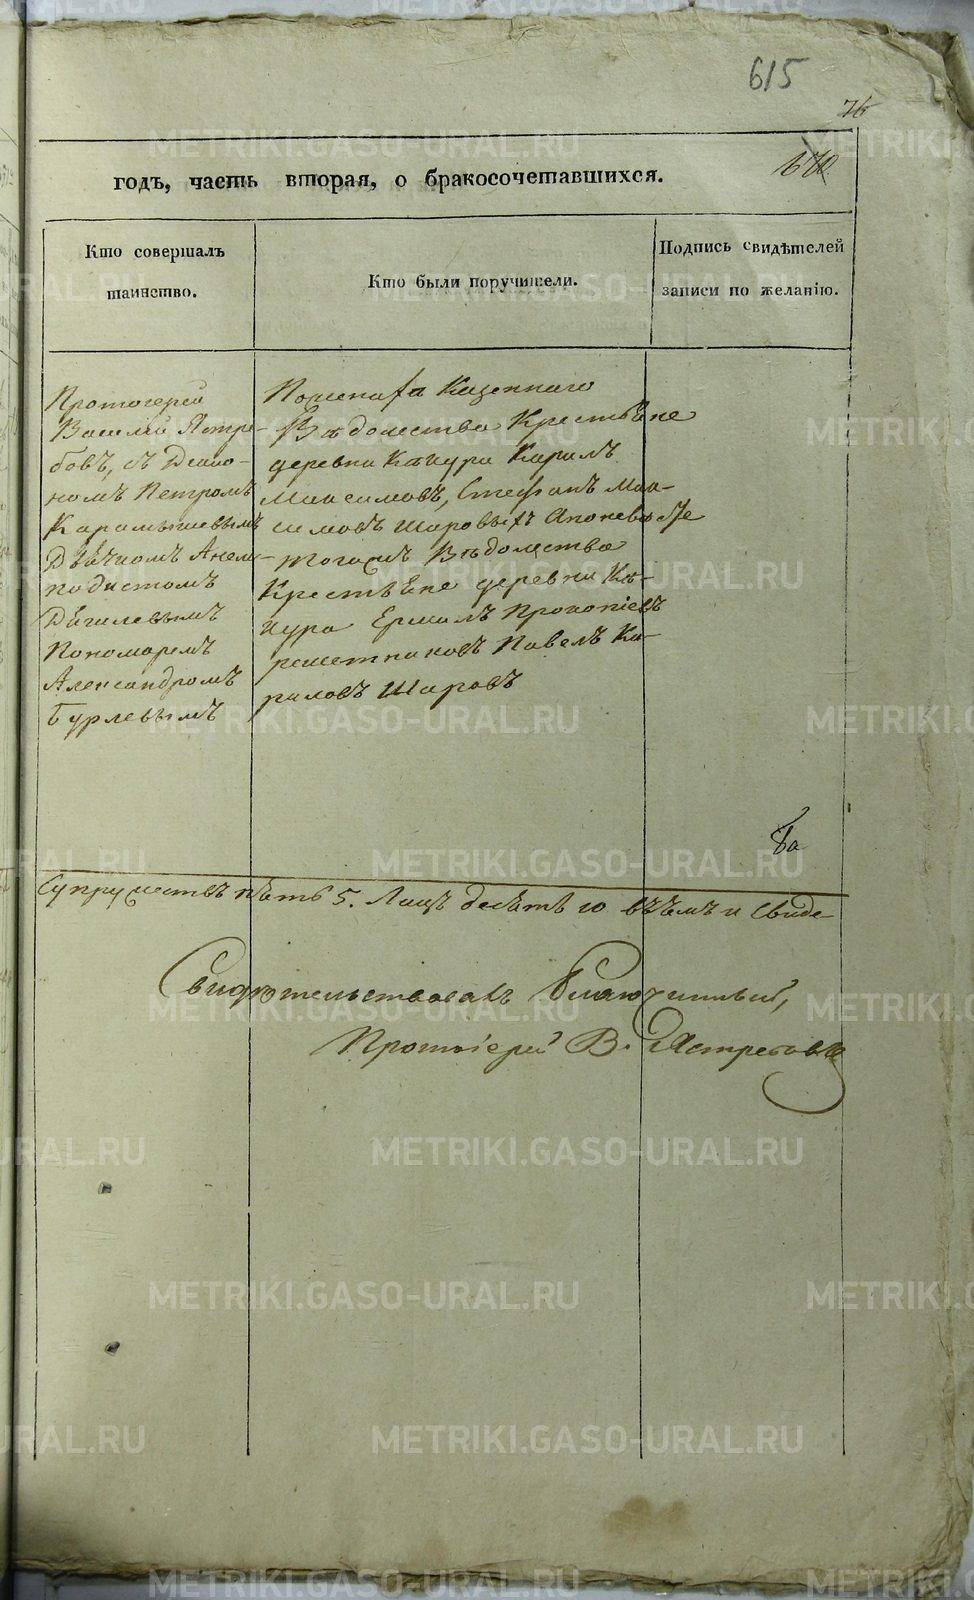 615
76
670.
годъ, часть вторая, о бракосочетавшихся.
Кто совершалъ
таинство.
Кто были поручители.
Подпись свидѣтелей
записи по желанію.
Протогерей
Василей Ястре-
бовъ, съ Деако-
номъ Петромъ
Карамышевымъ
Дьячкомъ Анем-
подистомъ
Дѣгилевымъ
Пономаремъ
Александромъ
Бурлевымъ
Пожениха Казеннаго
Вѣдомства Крестьѣне
деревни Кѣкура Карилъ
Максимовъ, Стефанъ Мак-
симовъ Шаровыхъ Апоневѣсте
тогожъ Вѣдомства
Крестьѣне деревни Кѣ-
кура Ермилъ Прокопіевъ
решетниковъ Павелъ Ка-
риловъ Шаровъ
Супружествъ пѣть 5. Лицъ десѣть 10
Свидѣтельствовалъ Благочинный,
Протоіерей В. Ястребовъ
METRIKI.GASO-URAL.RU